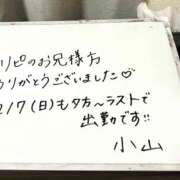 リピのお兄様方
ありがとうございました♡
2/7(日)も夕方〜ラストで
出勤です!!
小山